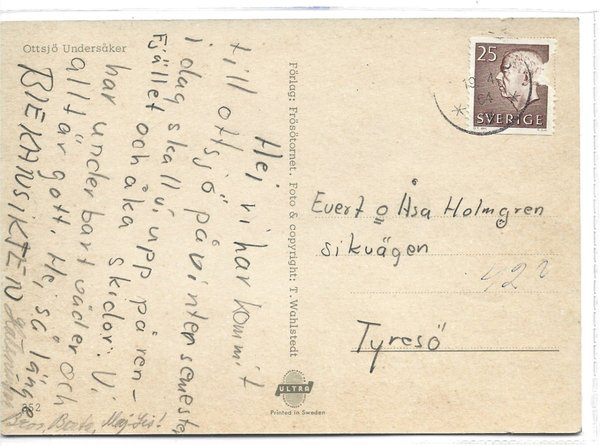 Ottsjö Undersåker
Hej vi har kommit
till ottsjö på vintersemester
i dag skall vi upp på ren-
fjället och åka skidor. Vi
har underbart väder och
allt är gott. Hej så länge
Beos, Berta, Maj-Lis!
Förlag: Frösötornet. Foto & copyright: T. Wahlstedt
ULTRA
Printed in Sweden
25
SVERIGE
Evert o Åsa Holmgren
sikvägen
422
Tyresö